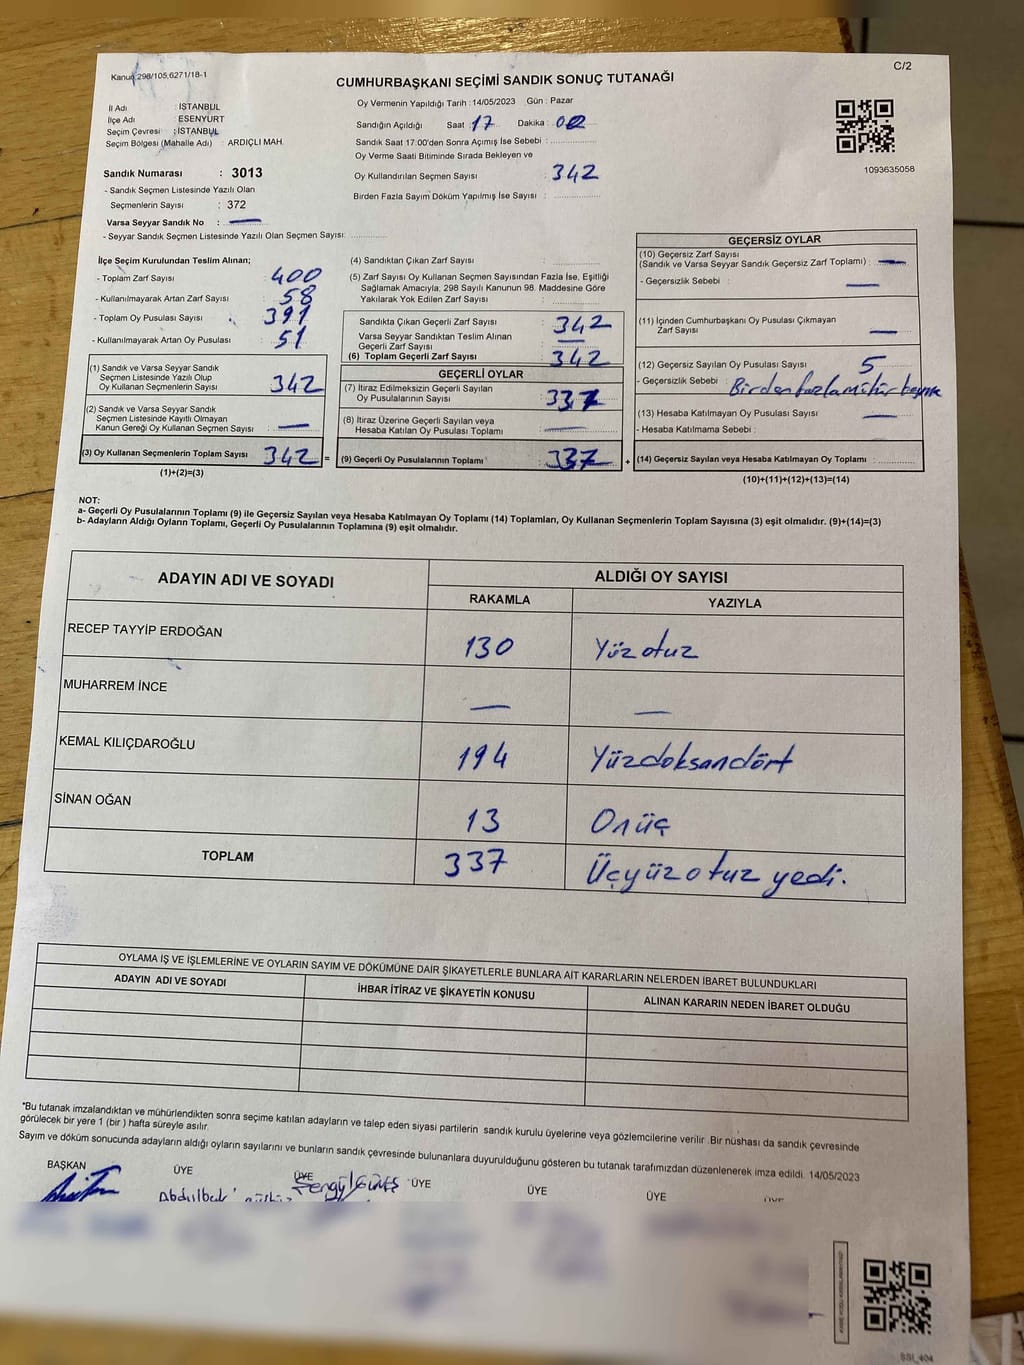 Kanun 298/105,6271/18-1
C/2
CUMHURBAŞKANI SEÇİMİ SANDIK SONUÇ TUTANAĞI
İl Adı : İSTANBUL
İlçe Adı : ESENYURT
Seçim Çevresi : İSTANBUL
Seçim Bölgesi (Mahalle Adı) : ARDIÇLI MAH.
Sandık Numarası : 3013
- Sandık Seçmen Listesinde Yazılı Olan
Seçmenlerin Sayısı : 372
Varsa Seyyar Sandık No : —
- Seyyar Sandık Seçmen Listesinde Yazılı Olan Seçmen Sayısı:
Oy Vermenin Yapıldığı Tarih : 14/05/2023 Gün : Pazar
Sandığın Açıldığı Saat : 17 Dakika : 02
Sandık Saat 17:00'den Sonra Açımış İse Sebebi :
Oy Verme Saati Bitiminde Sırada Bekleyen ve
Oy Kullandırılan Seçmen Sayısı : 342
Birden Fazla Sayım Döküm Yapılmış İse Sayısı :
1093635058
İlçe Seçim Kurulundan Teslim Alınan;
- Toplam Zarf Sayısı : 400
- Kullanılmayarak Artan Zarf Sayısı : 58
- Toplam Oy Pusulası Sayısı : 391
- Kullanılmayarak Artan Oy Pusulası : 51
(1) Sandık ve Varsa Seyyar Sandık
Seçmen Listesinde Yazılı Olup
Oy Kullanan Seçmenlerin Sayısı : 342
(2) Sandık ve Varsa Seyyar Sandık
Seçmen Listesinde Kayıtlı Olmayan
Kanun Gereği Oy Kullanan Seçmen Sayısı : —
(3) Oy Kullanan Seçmenlerin Toplam Sayısı : 342 =
(1)+(2)=(3)
(4) Sandıktan Çıkan Zarf Sayısı :
(5) Zarf Sayısı Oy Kullanan Seçmen Sayısından Fazla İse, Eşitliği
Sağlamak Amacıyla, 298 Sayılı Kanunun 98. Maddesine Göre
Yakılarak Yok Edilen Zarf Sayısı :
Sandıkta Çıkan Geçerli Zarf Sayısı : 342
Varsa Seyyar Sandıktan Teslim Alınan
Geçerli Zarf Sayısı : —
(6) Toplam Geçerli Zarf Sayısı : 342
GEÇERLİ OYLAR
(7) İtiraz Edilmeksizin Geçerli Sayılan
Oy Pusulalarının Sayısı : 337
(8) İtiraz Üzerine Geçerli Sayılan veya
Hesaba Katılan Oy Pusulası Toplamı : —
(9) Geçerli Oy Pusulalarının Toplamı : 337 +
GEÇERSİZ OYLAR
(10) Geçersiz Zarf Sayısı
(Sandık ve Varsa Seyyar Sandık Geçersiz Zarf Toplamı) : —
- Geçersizlik Sebebi : —
(11) İçinden Cumhurbaşkanı Oy Pusulası Çıkmayan
Zarf Sayısı : —
(12) Geçersiz Sayılan Oy Pusulası Sayısı : 5
- Geçersizlik Sebebi : Birden fazla mühür
(13) Hesaba Katılmayan Oy Pusulası Sayısı : —
- Hesaba Katılmama Sebebi :
(14) Geçersiz Sayılan veya Hesaba Katılmayan Oy Toplamı :
(10)+(11)+(12)+(13)=(14)
NOT:
a- Geçerli Oy Pusulalarının Toplamı (9) ile Geçersiz Sayılan veya Hesaba Katılmayan Oy Toplamı (14) Toplamları, Oy Kullanan Seçmenlerin Toplam Sayısına (3) eşit olmalıdır. (9)+(14)=(3)
b- Adayların Aldığı Oyların Toplamı, Geçerli Oy Pusulalarının Toplamına (9) eşit olmalıdır.
ADAYIN ADI VE SOYADI ALDIĞI OY SAYISI
RAKAMLA YAZIYLA
RECEP TAYYİP ERDOĞAN 130 Yüz otuz
MUHARREM İNCE — —
KEMAL KILIÇDAROĞLU 194 Yüzdoksandört
SİNAN OĞAN 13 Onüç
TOPLAM 337 Üçyüz otuz yedi.
OYLAMA İŞ VE İŞLEMLERİNE VE OYLARIN SAYIM VE DÖKÜMÜNE DAİR ŞİKAYETLERLE BUNLARA AİT KARARLARIN NELERDEN İBARET BULUNDUKLARI
ADAYIN ADI VE SOYADI İHBAR İTİRAZ VE ŞİKAYETİN KONUSU ALINAN KARARIN NEDEN İBARET OLDUĞU
*Bu tutanak imzalandıktan ve mühürlendikten sonra seçime katılan adayların ve talep eden siyasi partilerin sandık kurulu üyelerine veya gözlemcilerine verilir .Bir nüshası da sandık çevresinde
görülecek bir yere 1 (bir ) hafta süreyle asılır.
Sayım ve döküm sonucunda adayların aldığı oyların sayılarını ve bunların sandık çevresinde bulunanlara duyurulduğunu gösteren bu tutanak tarafımızdan düzenlenerek imza edildi. 14/05/2023
BAŞKAN ÜYE ÜYE ÜYE ÜYE ÜYE
Şengül GÜNEŞ